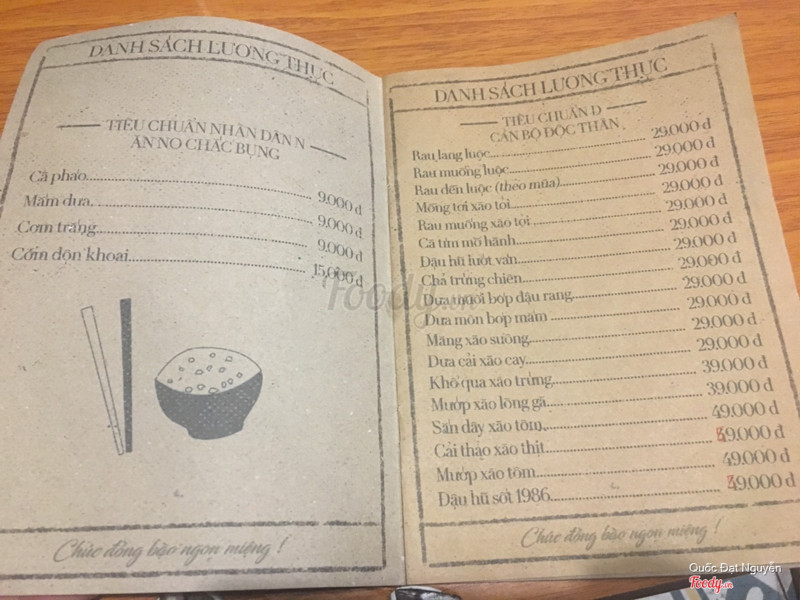 DANH SÁCH LƯƠNG THỰC
TIÊU CHUẨN NHÂN DÂN N
ĂN NO CHẮC BỤNG
Cà pháo 9.000 đ
Mắm dưa 9.000 đ
Cơm trắng 9.000 đ
Cơm độn khoai 15.000 đ
Chúc đồng bào ngon miệng !
DANH SÁCH LƯƠNG THỰC
TIÊU CHUẨN D
CÁN BỘ ĐỘC THÂN
Rau lang luộc 29.000 đ
Rau muống luộc 29.000 đ
Rau dền luộc (theo mùa) 29.000 đ
Mồng tơi xào tỏi 29.000 đ
Rau muống xào tỏi 29.000 đ
Cà tím mỡ hành 29.000 đ
Đậu hũ lướt ván 29.000 đ
Chả trứng chiên 29.000 đ
Dưa muối bóp đậu rang 29.000 đ
Dưa món bóp mắm 29.000 đ
Măng xào suông 29.000 đ
Dưa cải xào cay 29.000 đ
Khổ qua xào trứng 39.000 đ
Mướp xào lòng gà 39.000 đ
Sắn dây xào tôm 49.000 đ
Cải thảo xào thịt 59.000 đ
Mướp xào tôm 49.000 đ
Đậu hũ sốt 1986 49.000 đ
Chúc đồng bào ngon miệng !
Foody.vn
Quốc Đạt Nguyễn
Foody.vn